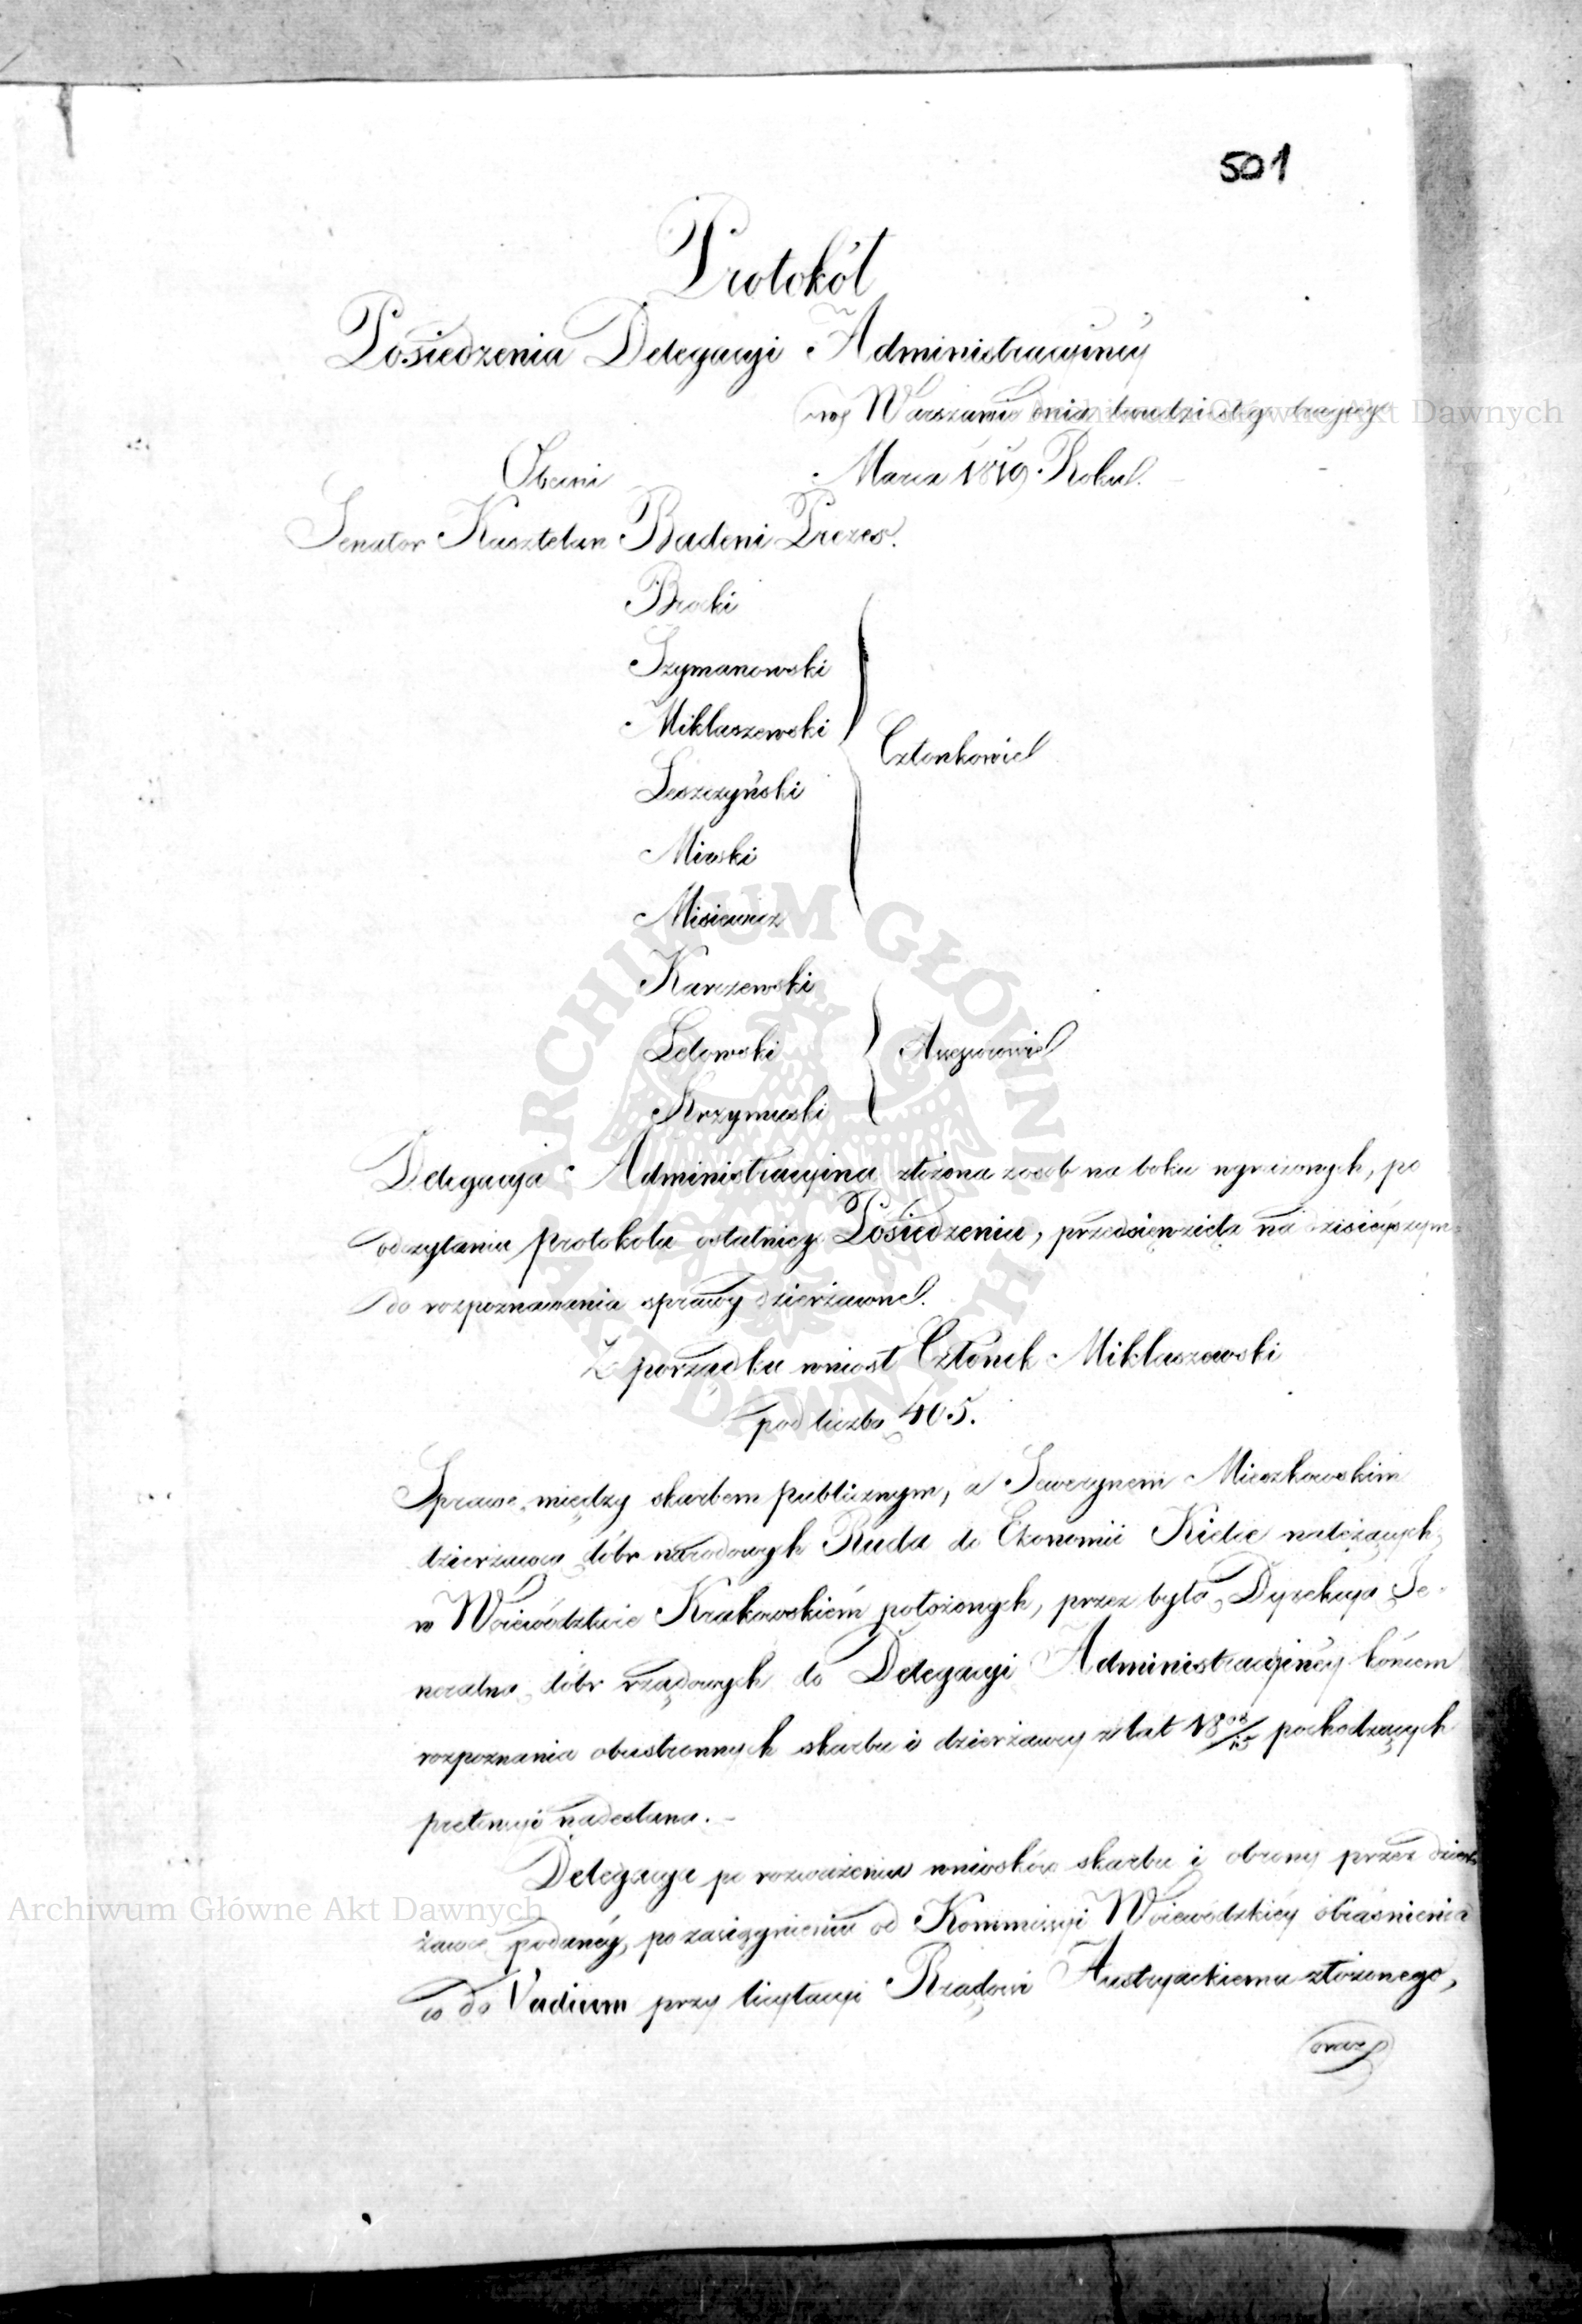 501
Protokół
Posiedzenia Delegacyi Administracyiney
w Warszawie dnia dwudziestego drugiego
Obecni Marca 1819 Roku.
Senator Kasztelan Badeni Prezes.
Brocki
Szymanowski
Miklaszewski
Członkowie
Leszczyński
Mirski
Misiewicz
Karczewski
Letowski
Assessorowie
Krzymuski
Delegacyia Administracyina złożona z osób na boku wyrażonych, po
odczytaniu protokołu ostatniego Posiedzenia, przedsięwzięła na dzisieyszym
do rozpoznawania sprawy dzierżawne.
Z porządku wniosł Członek Miklaszewski
pod liczbą 405.
Sprawę między skarbem publicznym, a Sewerynem Mieszkowskim
dzierżawcą dóbr narodowych Ruda do Ekonomii Kielce należących,
w Woiewództwie Krakowskiém położonych, przez byłą Dyrekcyą Je-
neralną dóbr rządowych do Delegacyi Administracyiney końcem
rozpoznania obustronnych skarbu i dzierżawcy z lat 18 /15 pochodzących
pretensyi nadesłaną. -
Delegacya po rozważeniu wniosków skarbu i obrony przez dzier-
żawcę podanéy, po zasiągnieniu od Kommissyi Woiewódzkiéy obiaśnienia
co do Vadium przy licytacyi Rządowi Austryackiemu złożonego,
oraz
Archiwum Główne Akt Dawnych
Archiwum Główne Akt Dawnych
ARCHIWUM GŁÓWNE AKT DAWNYCH